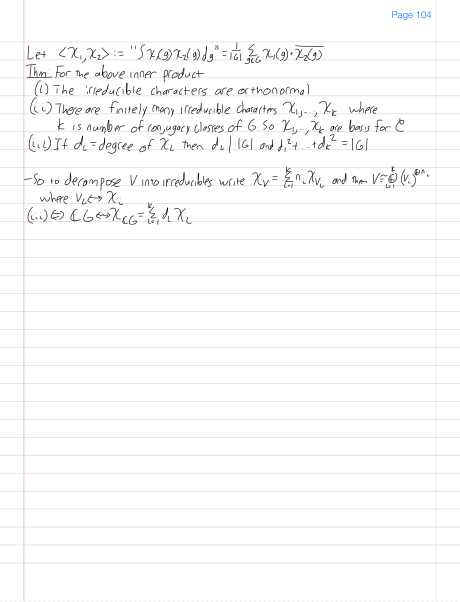 Page 104
Let <χ₁,χ₂> := "∫χ₁(g)χ₂(g)dg" = 1/|G| Σ_{g∈G} χ₁(g)·\overline{χ₂(g)}
Thm: For the above inner product
(i) The irreducible characters are orthonormal
(ii) There are finitely many irreducible characters χ₁,...,χₖ where
k is number of conjugacy classes of G. So χ₁,...,χₖ are basis for C
(iii) If dᵢ = degree of χᵢ then dᵢ | |G| and d₁²+...+dₖ² = |G|
-So to decompose V into irreducibles write χ_V = Σ_{i=1}^k nᵢχ_{Vᵢ} and then V = ⊕_{i=1}^k (Vᵢ)^{⊕nᵢ}
where Vᵢ ↔ χᵢ
(iii) ⟺ ℂG ↔ χ_{ℂG} = Σ_{i=1}^k dᵢχᵢ